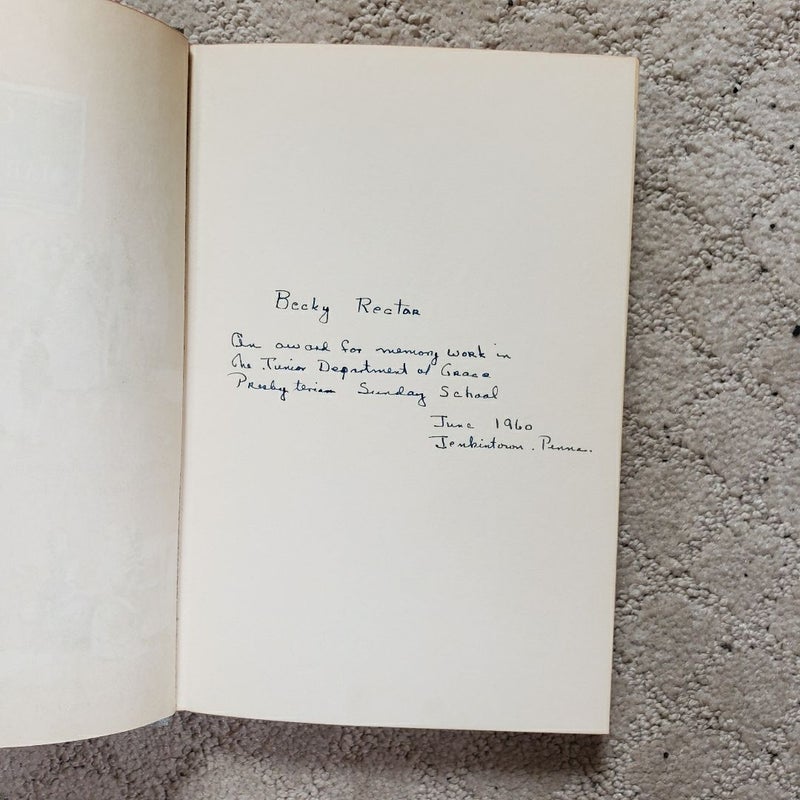 Becky Rector
An award for memory work in
the Junior Department of Grace
Presbyterian Sunday School
June 1960
Jenkintown. Penna.